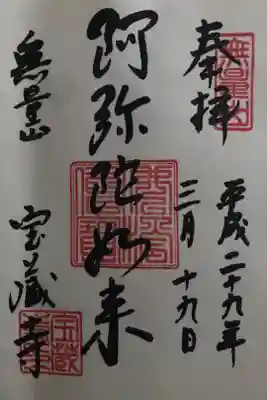 奉拝
平成二十九年
三月十九日
阿弥陀如来
無量山
宝蔵寺
無量山
宝蔵寺